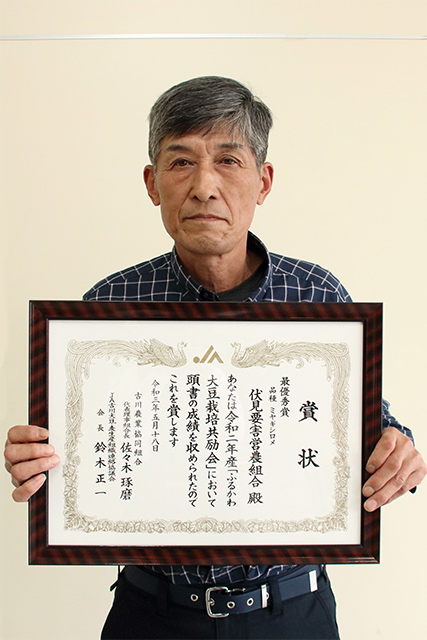 賞状
最優秀賞
品種 ミヤギシロメ
伏見要害営農組合 殿
あなたは令和二年産「ふるかわ
大豆栽培共励会」において
頭書の成績を収められたので
これを賞します
令和三年五月十八日
古川農業協同組合
代表理事組合長 佐々木 琢磨
JA古川大豆生産組織連絡協議会
会長 鈴木 正一